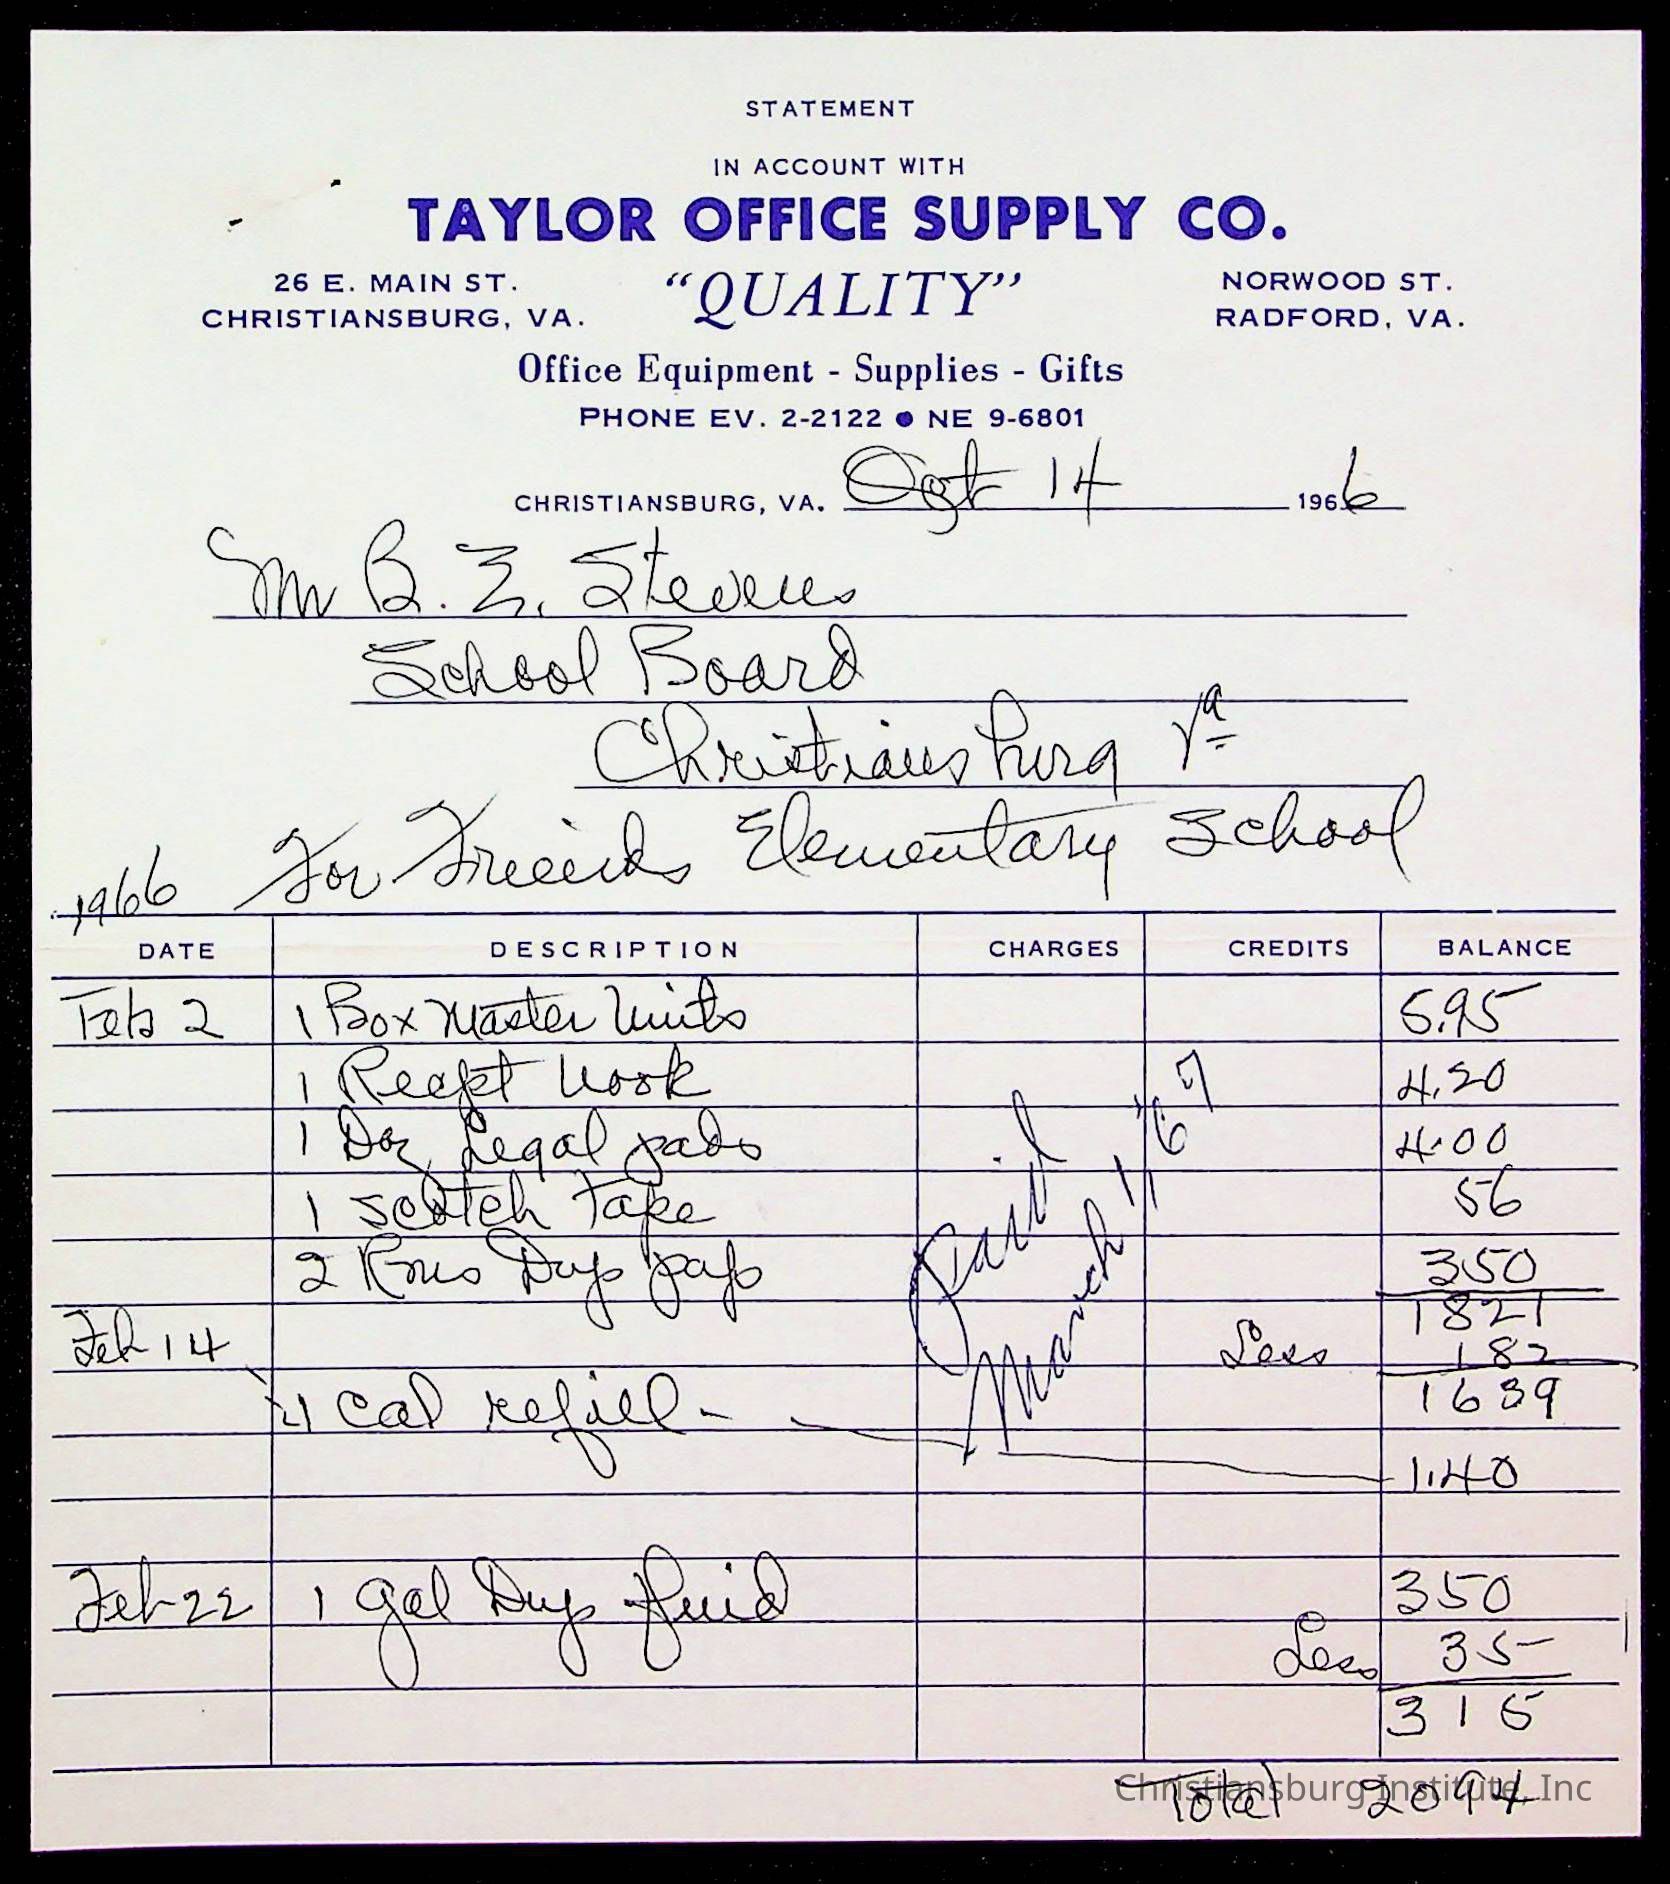 STATEMENT
IN ACCOUNT WITH
TAYLOR OFFICE SUPPLY CO.
26 E. MAIN ST. "QUALITY" NORWOOD ST.
CHRISTIANSBURG, VA. RADFORD, VA.
Office Equipment - Supplies - Gifts
PHONE EV. 2-2122 • NE 9-6801
CHRISTIANSBURG, VA. Oct 14 1966
Mr B. Z. Stevens
School Board
Christiansburg Va
For Friends Elementary School
1966
DATE DESCRIPTION CHARGES CREDITS BALANCE
Feb 2 1 Box Master Units 5.95
1 Recept book 4.20
1 Doz Legal pads 4.00
1 scotch Tape 56
2 Rms Dup pap 350
1821
Feb 14 Less 182
1 Cal refill - 1639
1.40
Paid
March 1, '67
Feb 22 1 gal Dup fluid 350
Less 35
315
Total 2094
Christiansburg Institute, Inc